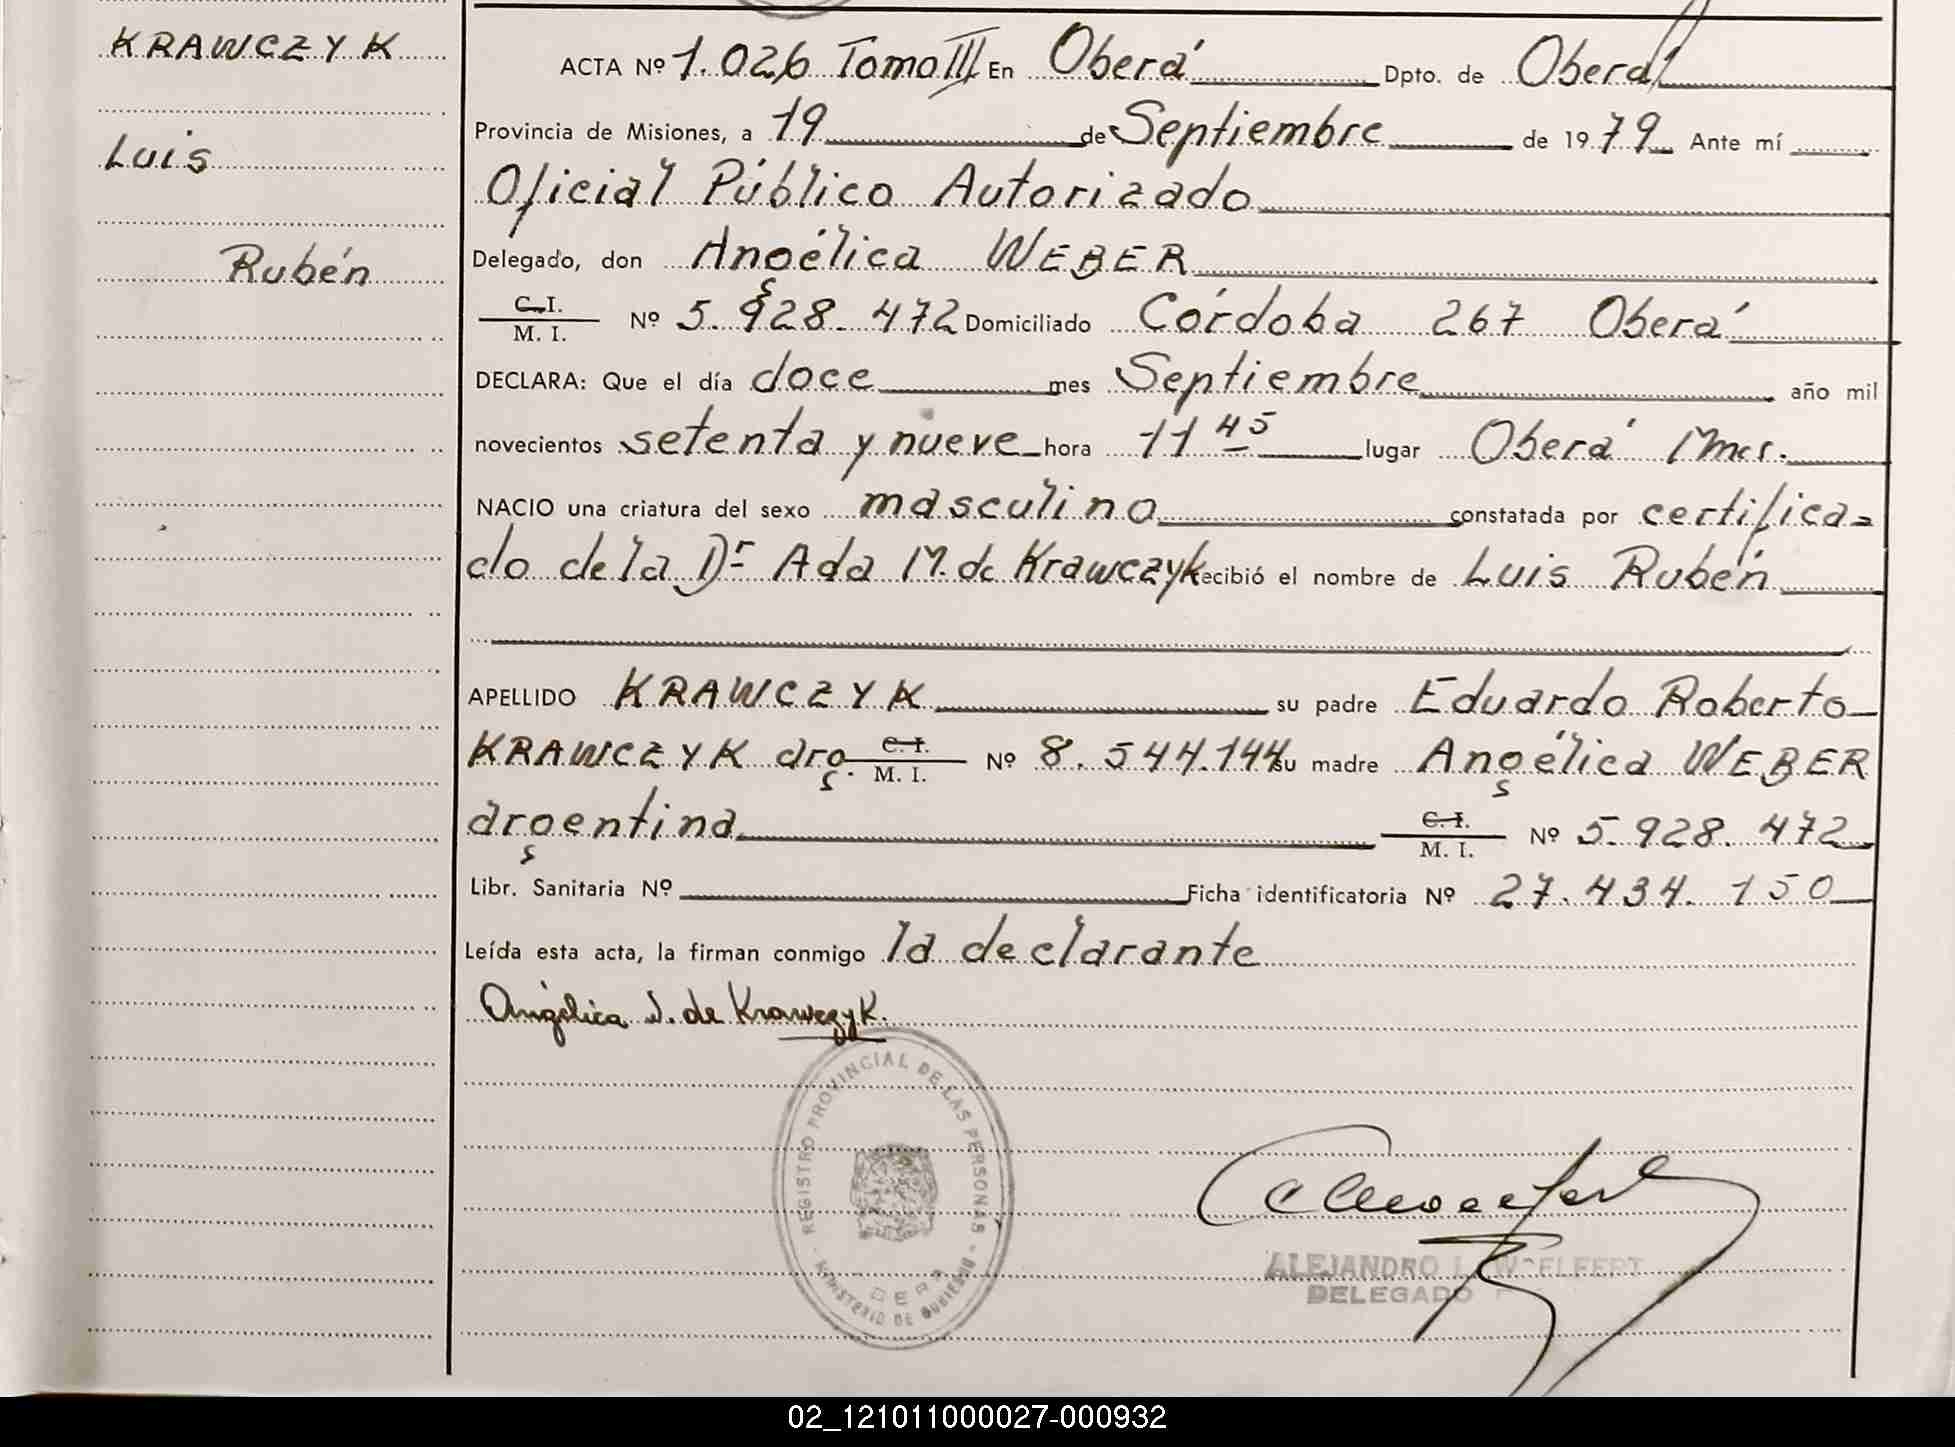 KRAWCZYK
Luis
Rubén
ACTA Nº 1.026 Tomo III En Oberá Dpto. de Oberá
Provincia de Misiones, a 19 de Septiembre de 1979 Ante mí
Oficial Público Autorizado
Delegado, don Angélica WEBER
C.I. / M. I. Nº 5.928.472 Domiciliado Córdoba 267 Oberá
DECLARA: Que el día doce mes Septiembre año mil
novecientos setenta y nueve hora 11 45 lugar Oberá Mnes.
NACIO una criatura del sexo masculino constatada por certifica=
do de la Dr Ada M. de Krawczyk recibió el nombre de Luis Rubén
APELLIDO KRAWCZYK su padre Eduardo Roberto
KRAWCZYK arg. C.I. / M. I. Nº 8.544.144 su madre Angélica WEBER
argentina C.I. / M. I. Nº 5.928.472
Libr. Sanitaria Nº Ficha identificatoria Nº 27.434.150
Leída esta acta, la firman conmigo la declarante
Angélica W. de Krawczyk.
REGISTRO PROVINCIAL DE LAS PERSONAS - MINISTERIO DE GOBIERNO -
OBERA
ALEJANDRO L. WOELFERT
DELEGADO
02_121011000027-000932